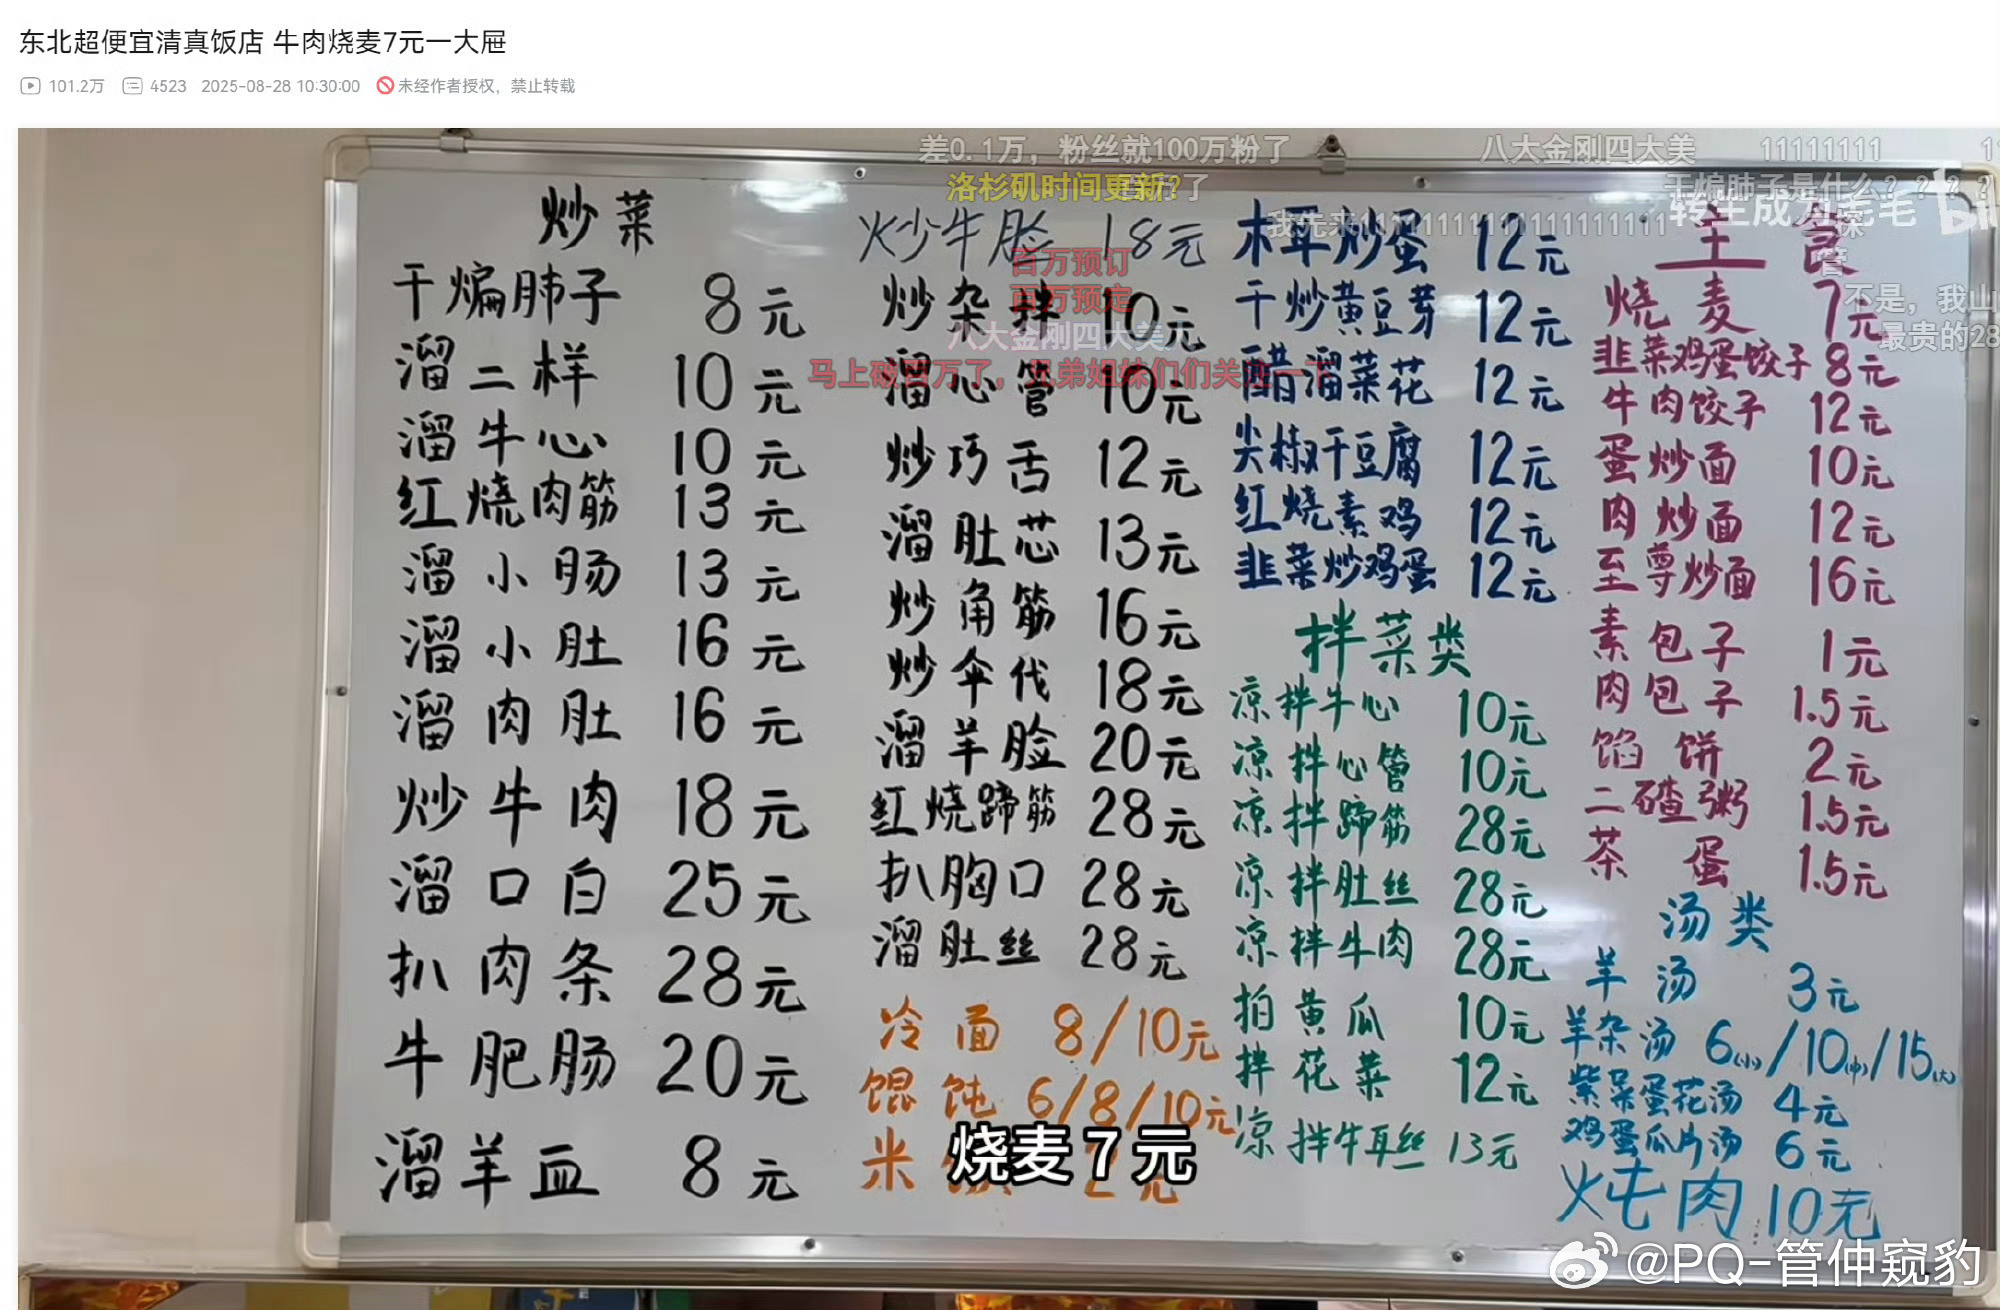 东北超便宜清真饭店 牛肉烧麦7元一大屉
101.2万 4523 2025-08-28 10:30:00 未经作者授权，禁止转载
差0.1万，粉丝就100万粉了
八大金刚四大美
11111111
洛杉矶时间更新？
干煸肺子是什么？？？？
我先来1111111111111111111
转生成为毛毛
百万预订
百万预定
八大金刚四大美
马上破百万了，兄弟姐妹们们关注一下
不是，我山
最贵的28
炒菜
干煸肺子 8元
溜二样 10元
溜牛心 10元
红烧肉筋 13元
溜小肠 13元
溜小肚 16元
溜肉肚 16元
炒牛肉 18元
溜口白 25元
扒肉条 28元
牛肥肠 20元
溜羊血 8元
炒牛脸 18元
炒杂拌 10元
溜心管 10元
炒巧舌 12元
溜肚芯 13元
炒角筋 16元
炒伞代 18元
溜羊脸 20元
红烧蹄筋 28元
扒胸口 28元
溜肚丝 28元
冷面 8/10元
馄饨 6/8/10元
米 2元
木耳炒蛋 12元
干炒黄豆芽 12元
醋溜菜花 12元
尖椒干豆腐 12元
红烧素鸡 12元
韭菜炒鸡蛋 12元
拌菜类
凉拌牛心 10元
凉拌心管 10元
凉拌蹄筋 28元
凉拌肚丝 28元
凉拌牛肉 28元
拍黄瓜 10元
拌花菜 12元
凉拌牛耳丝 13元
主食
烧麦 7元
韭菜鸡蛋饺子 8元
牛肉饺子 12元
蛋炒面 10元
肉炒面 12元
至尊炒面 16元
素包子 1元
肉包子 1.5元
馅饼 2元
二碴粥 1.5元
茶蛋 1.5元
汤类
羊汤 3元
羊杂汤 6(小)/10(中)/15(大)
紫菜蛋花汤 4元
鸡蛋瓜片汤 6元
炖肉10元
烧麦7元
@PQ-管仲窥豹